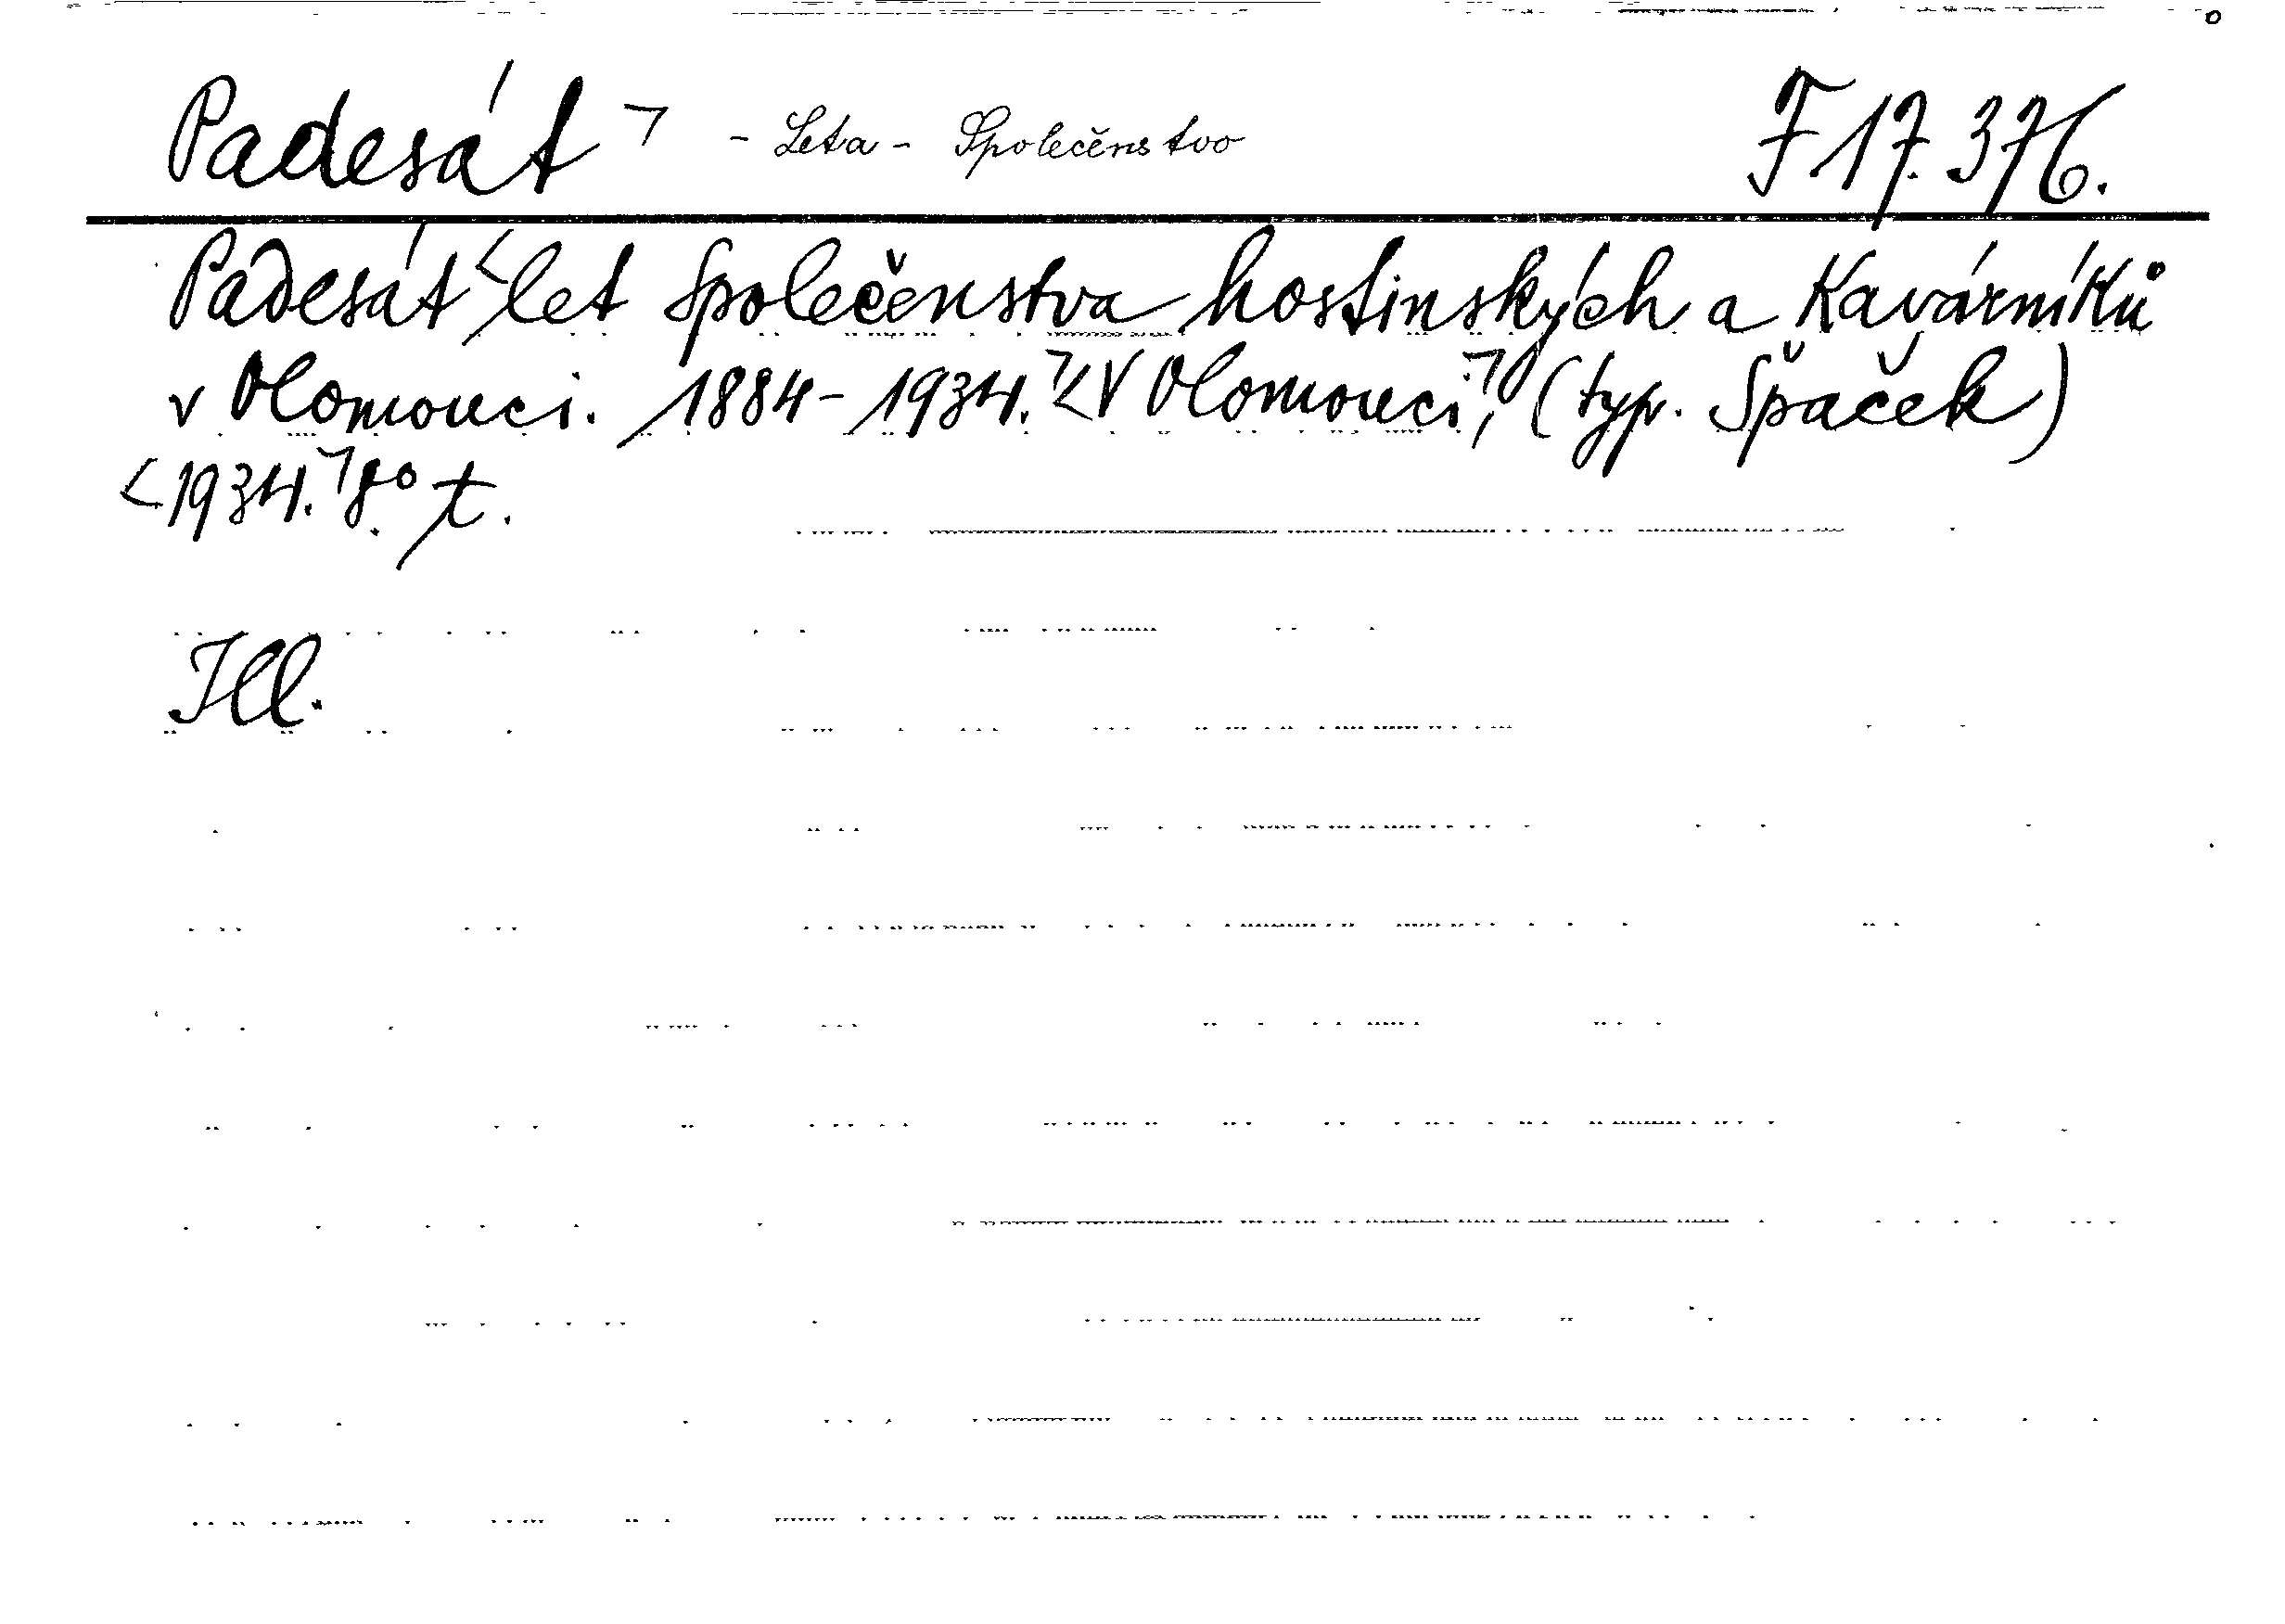 Padesát ¬ - Leta - Společenstvo F 17.376.
Padesát < let Společenstva hostinských a Kavárníků
v Olomouci. 1884-1934. ¬ < V Olomouci, ¬ (typ. Špaček)
< 1934. ¬ 8° t.
Ill.